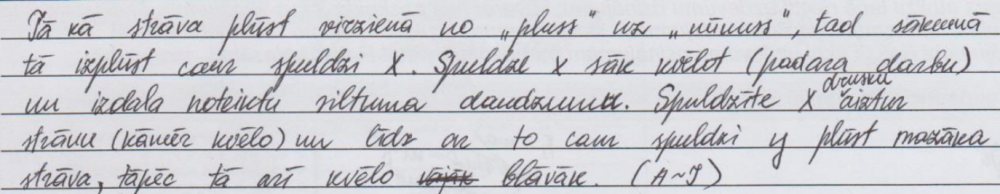 Tā kā strāva plūst virzienā no „pluss" uz „mīnuss", tad sākumā
tā izplūst caur spuldzi X. Spuldze x sāk kvēlot (padara darbu)
un izdala noteiktu siltuma daudzumu. Spuldzīte X drusku aiztur
strāvu (kamēr kvēlo) un līdz ar to caur spuldzi y plūst mazāka
strāva, tāpēc tā arī kvēlo vājāk blāvāk. (A~I)